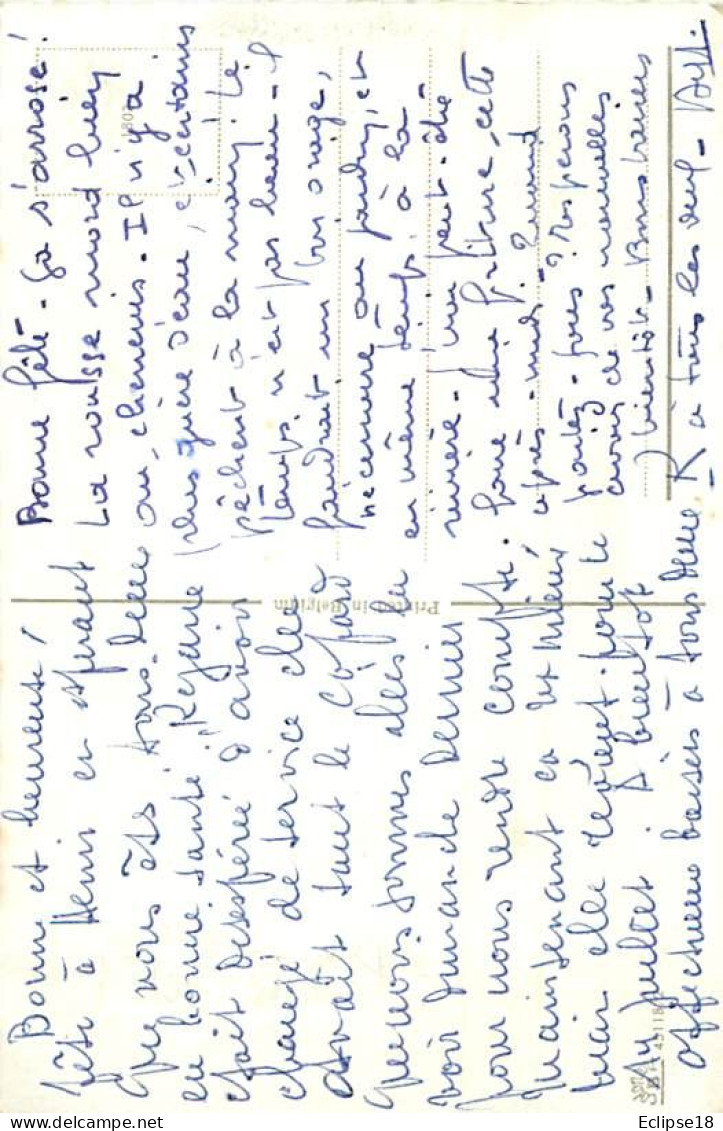 Bonne et heureuse!
fête à Henri en espérant
que vous êts tous deux
en bonne santé. Rejane
était désespérée d'avoir
changé de service elle
avait tout le cafard
que nous sommes allés la
voir dimanche dernier
pour nous rendre compte.
Maintenant ça va mieux
mais elle revient pour le
14 juillet. A bientot
affectueux baisers à tous deux
R
Bonne fête - ça s'arrose!
La rousse mord bien
au chenevis. Il n'y a
plus guère d'eau, et certains
pêchent à la main! Le
temps n'est pas beau - il
faudrait un bon orage,
nécessaire au jardin, et
en même temps, à la
rivière. J'irai peut-être
faire une friture, cette
après-midi - Quand
partez-vous? Espérons
avoir de vos nouvelles
bientôt - Bons baisers
à tous les deux -
Printed in Belgium
1802
Eclipse18